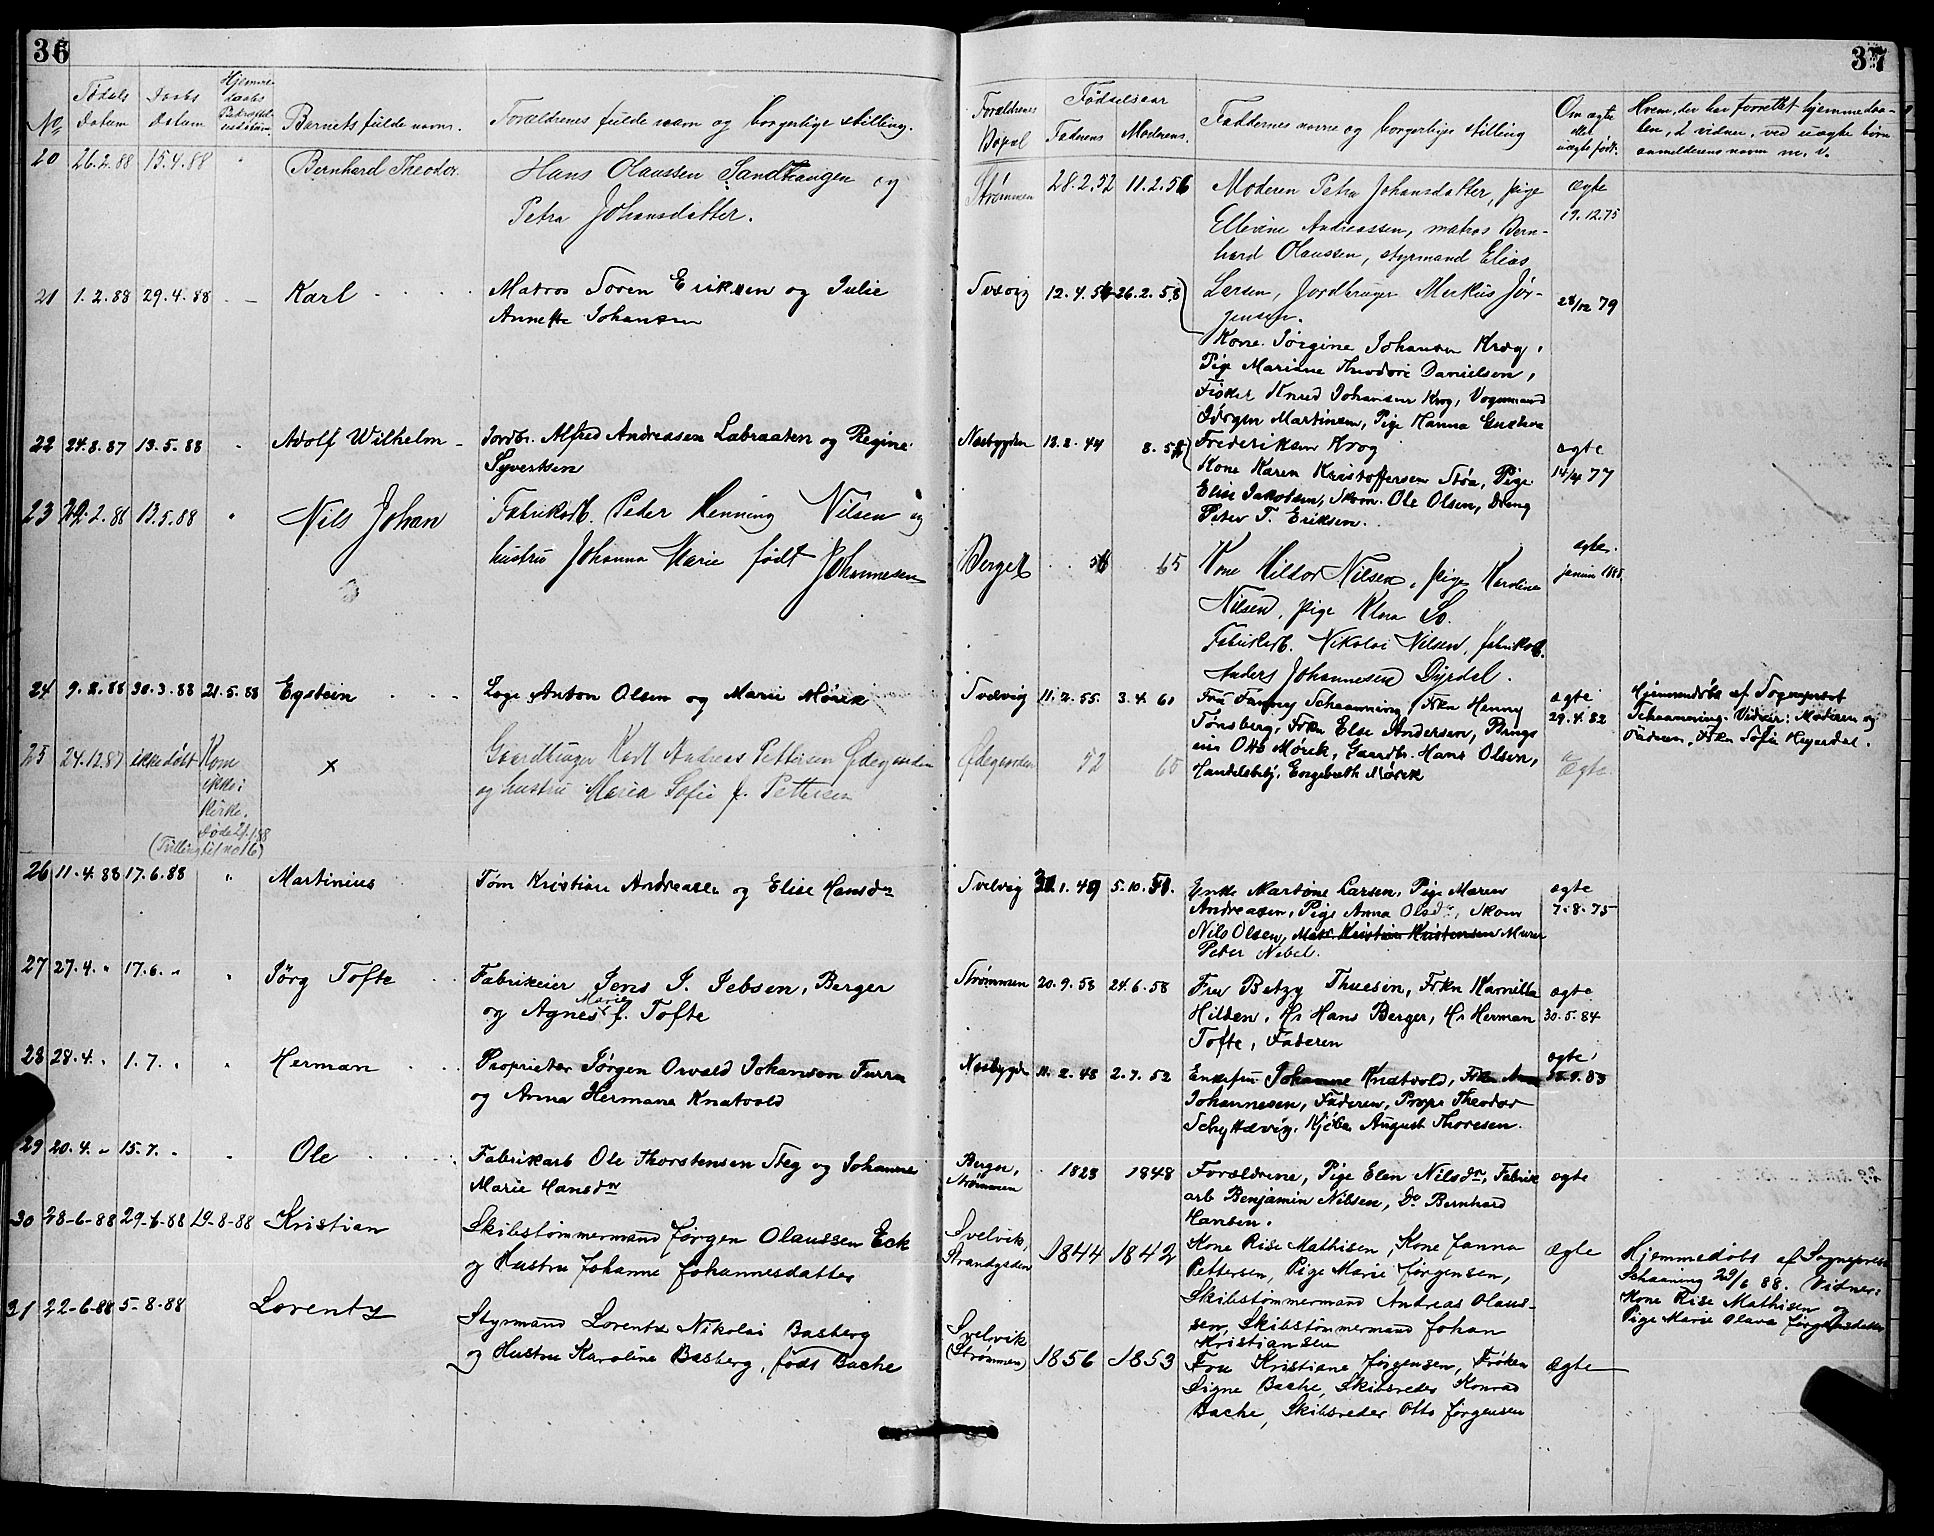 36
No
Fødsels Datum
Daabs Datum
Hjemme-daabs Bekræftel-sesdatum
Barnets fulde navn.
Forældrenes fulde navn og borgerlige stilling.
20 26.2.88 15.4.88 " Bernhard Theodor. Hans Olaussen Sandtangen og
Petra Johansdatter.
21 1.2.88 29.4.88 - Karl Matros Søren Eriksen og Julie
Annette Johansen
22 24.8.87 13.5.88 - Adolf Wilhelm Jordbr. Alfred Andreasen Labraaten og Regine
Syvertsen
23 2.88 13.5.88 " Nils Johan Fabrikarb. Peder Henning Nilsen og
hustru Johanna Marie født Johannesen
24 9.2.88 30.3.88 21.5.88 Egstein Logs Anton Olsen og Marie Mørck
25 24.12.87 ikke døbt Kom ikke i kirke. Død 2/1.88 × Gaardbruger Karl Andreas Pettersen Ødegaarden
(Tvilling til no 16) og hustru Maria Sofie f. Pettersen
26 11.4.88 17.6.88 " Martinius Tøm Kristian Andreasen og Elise Hansdr
27 27.4. " 17.6. " " Jörg Tofte Fabrikeier Jens J. Jebsen, Berger
og Agnes Marie f. Tofte
28 28.4. " 1.7. " " Herman Proprietær Jørgen Osvald Johansen Furra
og Anna Hermana Knatvold
29 20.4. " 15.7. " " Ole Fabrikarb Ole Thorstensen Steg og Johanne
Marie Hansdr
30 28-6-88 29-6-88 19-8-88 Kristian Skibstømmermand Jørgen Olaussen Eck
og Hustru Johanne Johannesdatter
31 22-6-88 5-8-88 Lorentz Styrmand Lorentz Nikolai Basberg
og Hustru Karoline Basberg, født Bache
37
Forældrenes Bopæl
Fødselsaar
Faderens Moderens.
Faddernes navne og borgerlige stilling
Om ægte eller uægte født.
Hvem, der har forrettet hjemmedaa-
ben, 2 vidner, ved uægte børn
anmelderens navn m. v.
Strømmen 28.2.52 11.2.56 Moderen Petra Johansdatter, pige ægte
Ellevine Andreassen, matros Bern- 19.12.75
hard Olaussen, styrmand Elias
Svelvig 12.4.54 26.2.58 Larsen, Jordbruger Markus Jør- 28/12 79
gensen.
Kone Jørgine Johansen Krog,
Pige Mariane Theodore Danielsen,
Fisker Knud Johansen Krog, Vognmand
Jørgen Martinsen, Pige Hanna Gustava
Næsbygden 13.2.44 8.54 Frederiksen Krog ægte
Kone Karen Kristoffersen Støa, Pige 14/4 77
Elise Jakobsen, Skom. Ole Olsen, Dreng
Peter T. Eriksen.
Berget 56 65 Kone Hildor Nilsen, pige Karoline ægte. januar 1885
Nilsen, pige Klara Do.
Fabrikarb. Nikolai Nilsen, fabrikarb.
Anders Johannesen Dyrdal.
Svelvig 11.2.55. 3.4.60 Fru Fanny Schaanning, Frkn Henny ægte Hjemmedøbt af Sognepræst
Tønsberg, Frkn Else Andersen, 29.4.82 Schaanning. Vidner: Moderen og
Otto Mørck, Gaardbr. Hans Olsen, Faderen, Frkn Sofie Heyerdal.
Ødegaarden 52 60 Handelsbetj. Engebreth Mørck Ægte.
Svelvig 1.49 5.10.51. Enke Martine Larsen, Pige Maren ægte
Andreasen, Pige Anna Olsdr, Skom 7.8.75
Nils Olsen, Matr. Kristian Kristensen Murer
Peter Nebel.
Strømmen 20.9.58 24.6.58 Fru Betzy Thuesen, Frkn Kamilla ægte
Hilden, Hr Hans Berger, Hr Herman 30.5.84
Tofte, Faderen
Næsbygdn 11.2.48 2.7.52 Enkefru Johanne Knatvold, Frkn Anna ægte
Johannesen, Faderen, Propr Theodor
Schyttævig, Kjøbm August Thoresen.
Berger, Strømmen 1823 1848 Forældrene, Pige Elen Nilsdr, Fabrik ægte
arb Benjamin Nilsen, Do Bernhard
Hansen.
Svelvik, Strandgaden 1844 1842 Kone Rise Mathisen, Kone Janna Ægte Hjemmedøbt af Sognepræst
Pettersen, Pige Marie Jørgensen, Schaaning 29/6 88. Vidner:
Skibstømmermand Andreas Olaus- Kone Rise Mathisen og
sen, Skibstømmermand Johan Pige Marie Olava Jørgensdatter
Kristiansen
Svelvik (Strømmen) 1856 1853 Fru Kristiane Jørgensen, Frøken Ægte
Signe Bache, Skibsreder Konrad
Bache, Skibsreder Otto Jørgensen